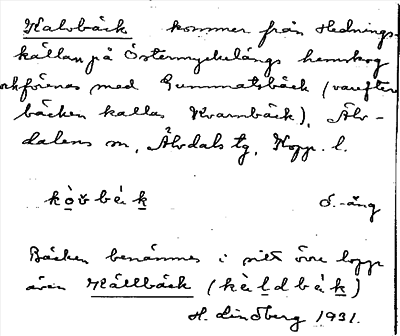 Kalvbäck kommer från Hednings-
källan på Östermyckelängs hemskog
och förenas med Gummatsbäck (varefter
bäcken kallas Kvarnbäck), Älv-
dalens sn, Älvdals tg, Kopp. l.
kò̱ʊ̆bèk̲ S.-äng
Bäcken benämnes i sitt övre lopp
även Källbäck (kèl̲dbèk̲)
H. Lindberg 1931.